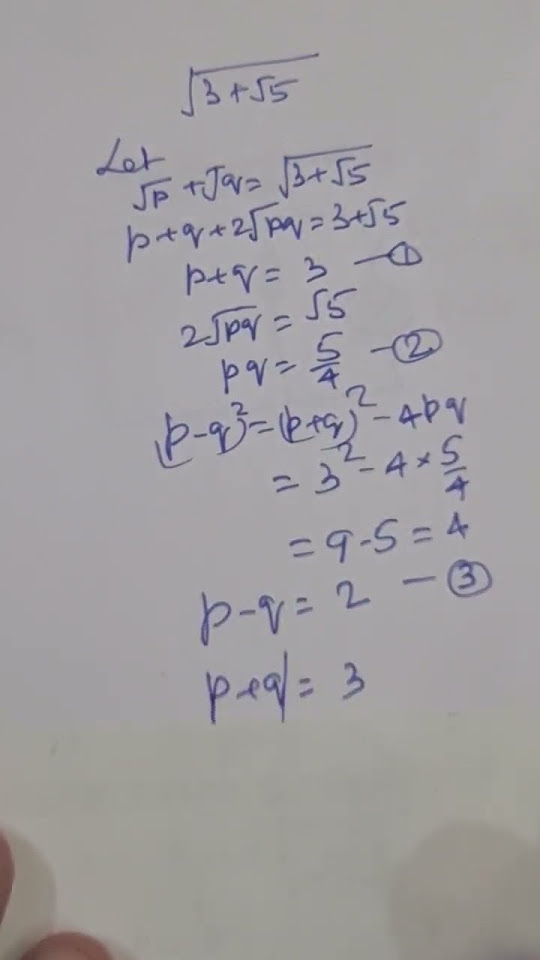 √(3+√5)
Let
√p + √q = √(3+√5)
p+q+2√pq = 3+√5
p+q = 3 —①
2√pq = √5
pq = 5/4 —②
(p-q)² = (p+q)² - 4pq
= 3² - 4 × 5/4
= 9-5 = 4
p-q = 2 —③
p+q = 3